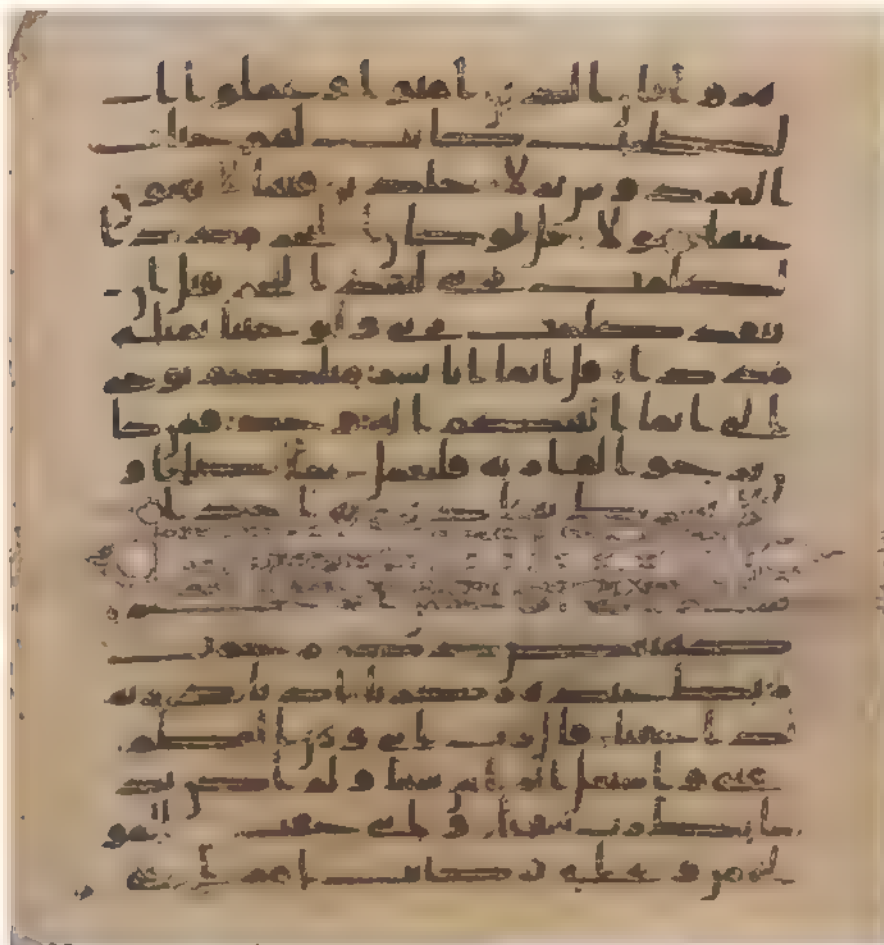 هزوا ان الذين امنوا وعملوا ا
لصلحت كانت لهم جنت
الفردوس نزلا خلدين فيها لا يبغون
عنها حولا قل لو كان البحر مددا
لكلمت ربي لنفد البحر قبل ان
تنفد كلمت ربي ولو جئنا بمثله
مددا قل انما انا بشر مثلكم يوحى
الي انما الهكم اله وحد فمن كا
ن يرجوا لقا ربه فليعمل عملا صلحا و
لا يشرك بعبادة ربه احدا
بسم الله الرحمن الرحيم
كهيعص ذكر رحمت
ربك عبده زكريا اذ نادى ربه
ندا خفيا قال رب اني وهن العظم
مني واشتعل الراس شيبا ولم اكن بد
عائك رب شقيا واني خفت المو
لي من وراي وكانت امراتي